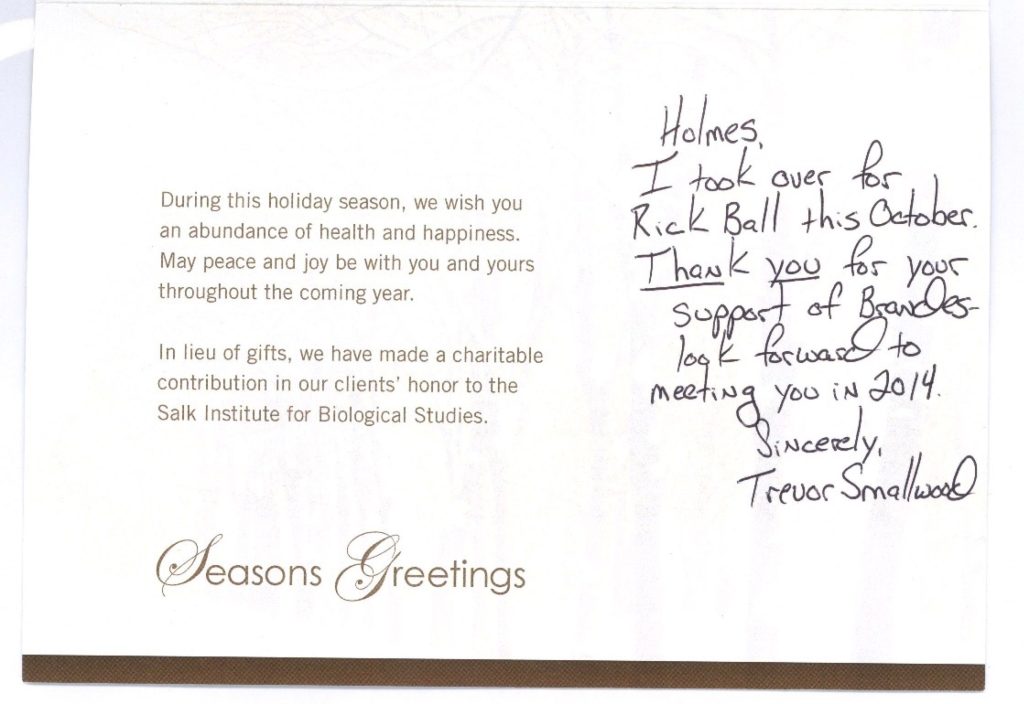 During this holiday season, we wish you
an abundance of health and happiness.
May peace and joy be with you and yours
throughout the coming year.
In lieu of gifts, we have made a charitable
contribution in our clients' honor to the
Salk Institute for Biological Studies.
Seasons Greetings
Holmes,
I took over for
Rick Ball this October.
Thank you for your
support of Brandes-
look forward to
meeting you in 2014.
Sincerely,
Trevor Smallwood